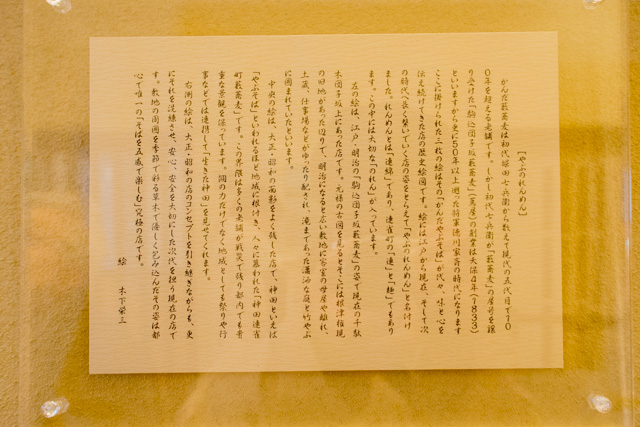 ［やぶのれんめん］
かんだ藪蕎麦は初代堀田七兵衛から数えて現代の五代目で１０
０年を超える老舗です。しかし初代七兵衛が「藪蕎麦」の屋号を譲
り受けた「駒込団子坂藪蕎麦」（蔦屋）の創業は天保４年（１８３３）
といいますから更に５０年以上遡った将軍徳川家斉の時代になります
ここに掛けられた三枚の絵はその「かんだやぶそば」が代々、味と心を
伝え続けてきた店の歴史絵図です。絵には江戸から現在、そして次
の時代へ長く繋いでいく店の姿をとらえて「やぶのれんめん」と名付け
ました。れんめんとは「連綿」であり、連雀町の「連」と「麺」でもあり
ます。この中には大切な「のれん」が入っています。
左の絵は、江戸・明治の「駒込団子坂藪蕎麦」の姿で現在の千駄
木団子坂上にあった店です。元禄の古図を見るとそこには根津権現
の旧地があった辺りで、明治になると広い敷地に客室の母屋や離れ、
土蔵、仕事場などがゆったり配され、滝まであった瀟洒な庭と竹やぶ
に囲まれていたといいます。
中央の絵は、大正・昭和の面影をよく残した店で、神田といえば
「やぶそば」といわれるほど地域に根付き、人々に愛われた「神田連雀
町藪蕎麦」です。この界隈は多くの老舗が戦災で残り都内でも貴
重な景観を保っています。個の力だけでなく地域としても祭りや行
事などでは連携して「生きた神田」を見せてくれます。
右側の絵は、大正・昭和の店のコンセプトを引き継ぎながらも、更
にそれを洗練させ、安心、安全を大切にした次代を担う現在の店で
す。敷地の周囲を季節で彩る草木で優しく包み込んだその姿は都
心で唯一の「そばを五感で楽しむ」究極の店です。
絵　木下栄三